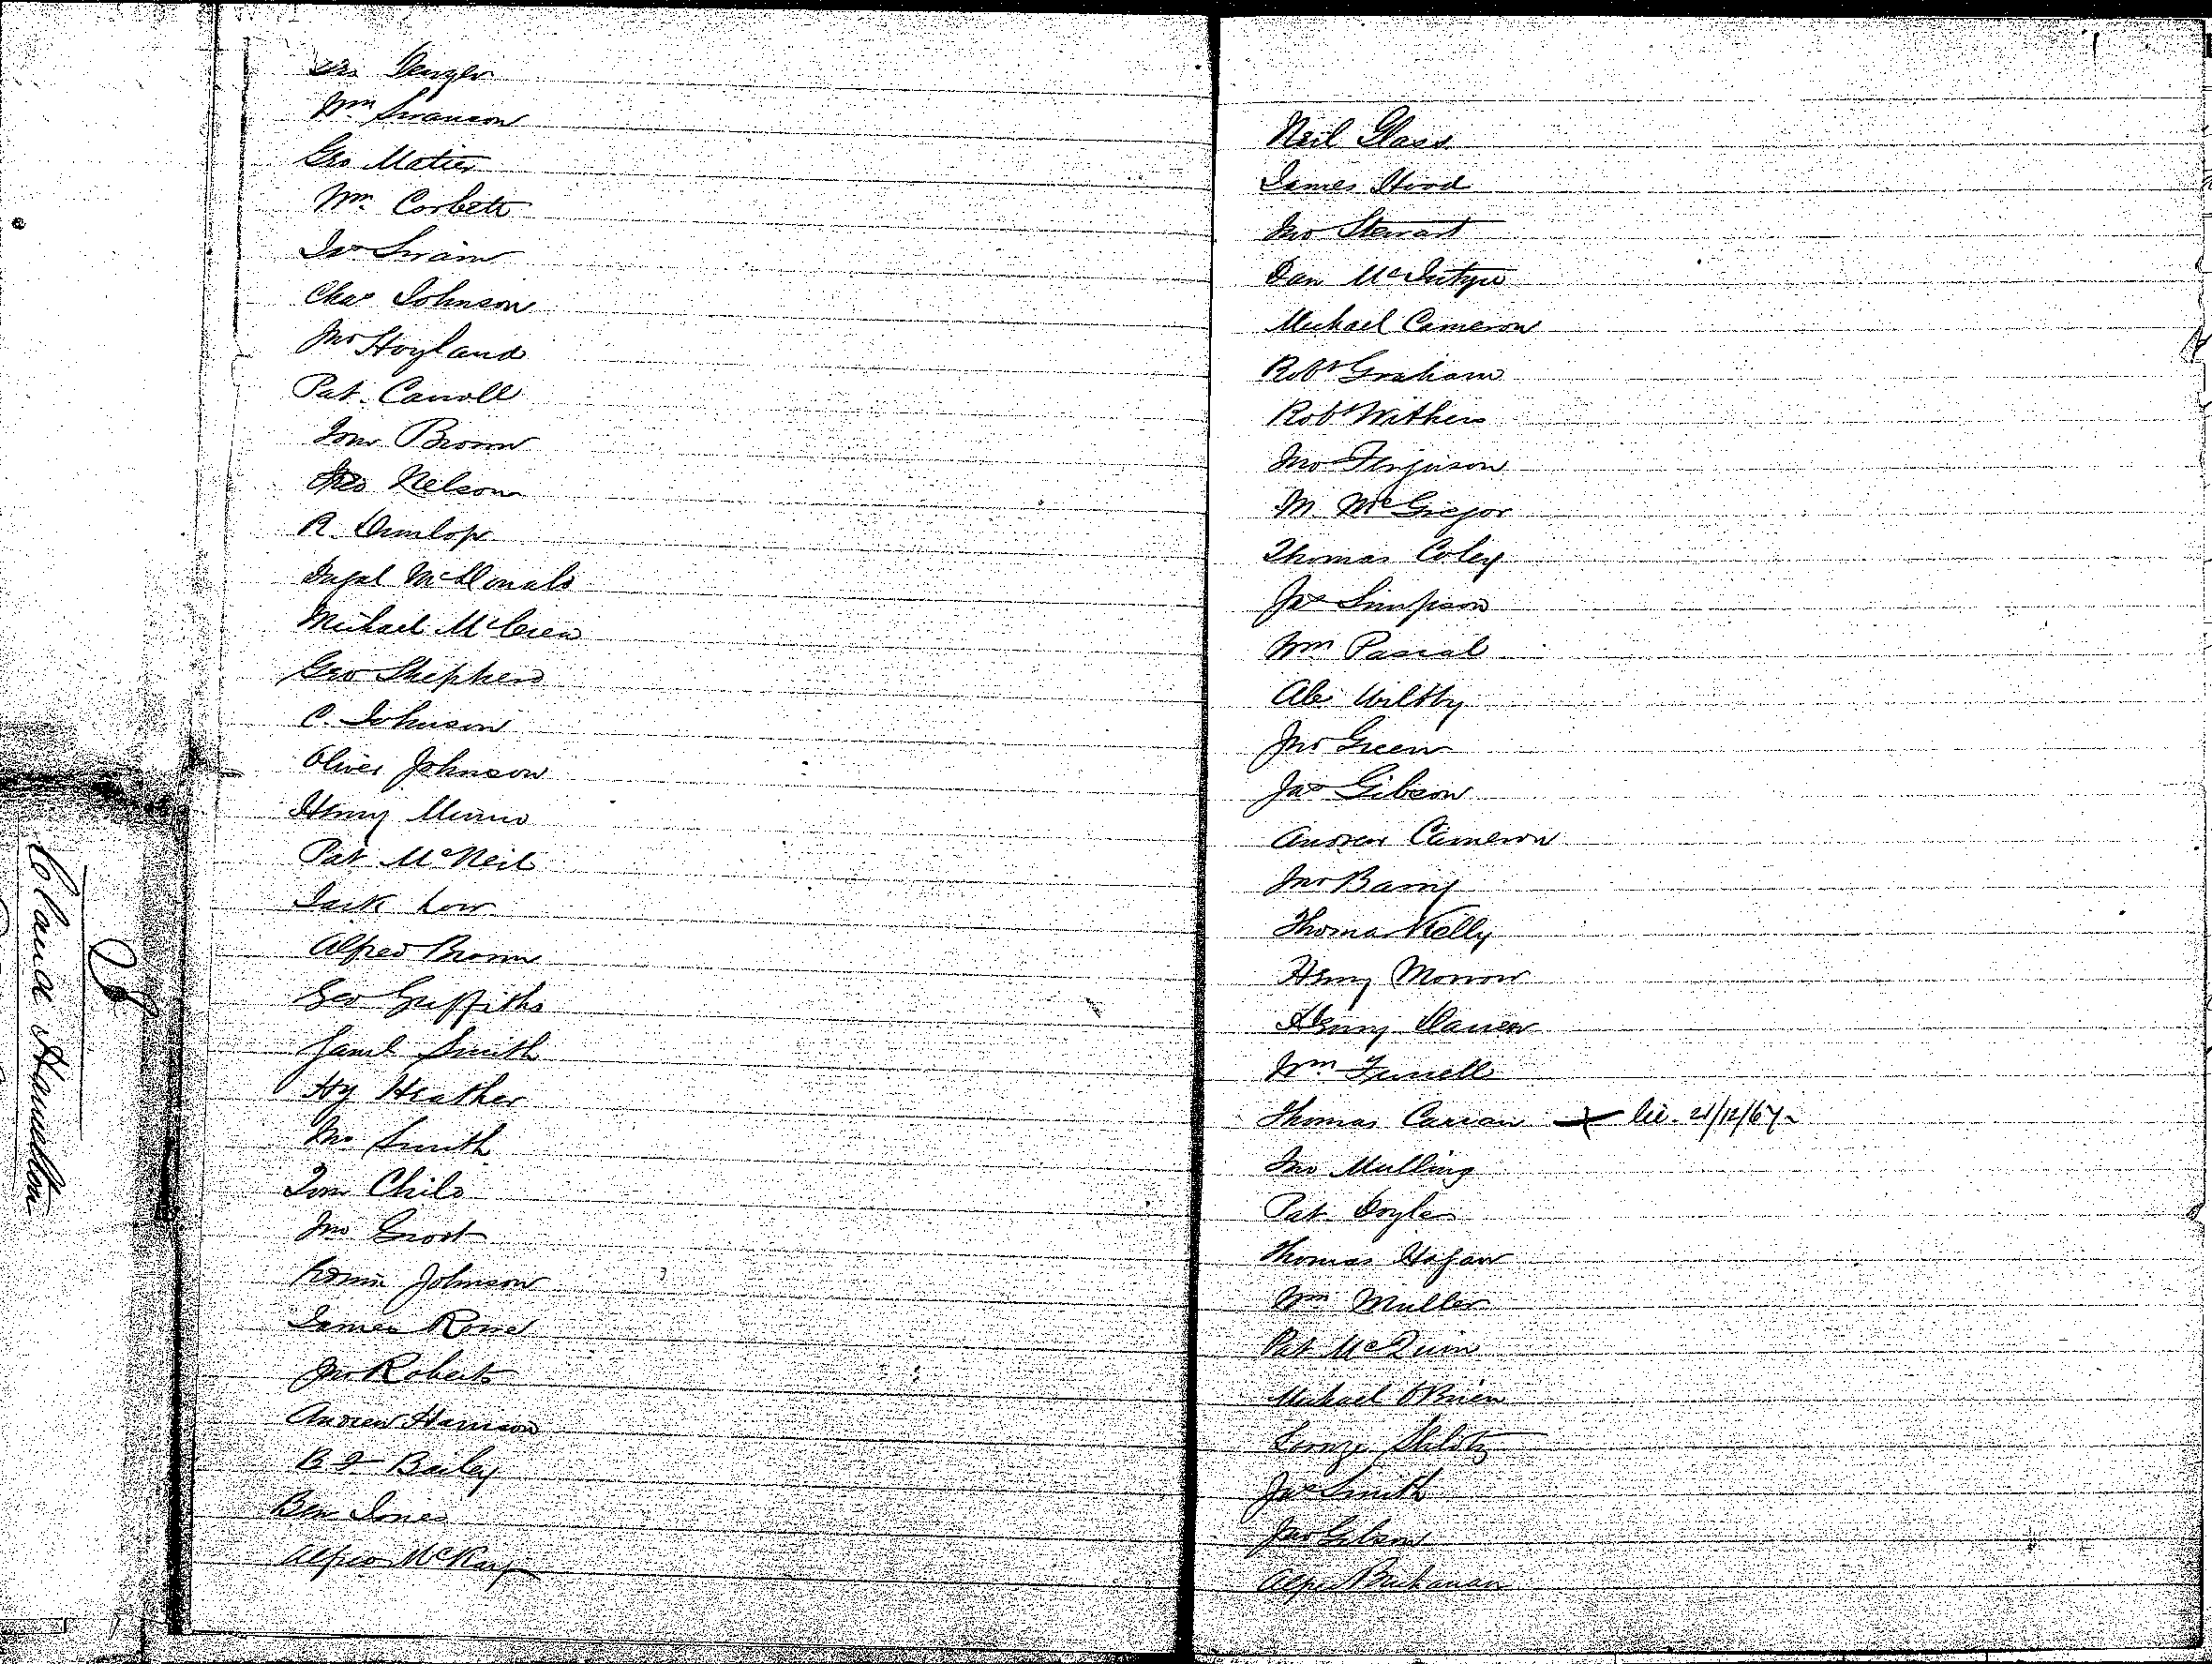 Wm Swanson
Geo Matier
Wm. Corbett
Jas Swain
Chas Johnson
Jno Hoyland
Pat. Carroll
Tom Brown
Nelson
R. Dunlop
Dugal McDonald
Michael McCrea
Geo Shepherd
C. Johnson
Oliver Johnson
Henry Munro
Pat McNeil
Jack Low
Alfred Brown
Geo Griffiths
Saml Smith
Hy Heather
Smith
Tom Child
Jno Groot
Johnson
James Rowe
Jno Roberts
Andrew Harrison
Bailey
Ben Jones
Alfred McKay
Neil Glass
James Hood
Jno Stewart
Dan McIntyre
Michael Cameron
Robt Graham
Robt Withers
Jno Ferguson
M. McGregor
Thomas Coley
Jas Simpson
Wm Pascal
Abe Wiltby
Jno Green
Jas Gibson
Andrew Cameron
Jno Barry
Thomas Kelly
Henry Morrow
Henry Warren
Wm Farrell
Thomas Curran + lic. 21/12/67
Jno Mulling
Pat Doyle
Thomas Hogan
Wm Muller
Pat McQuin
Michael O'Brien
George
Jas Smith
Jas Gibson
Alfred Buchanan
Claud Hamilton